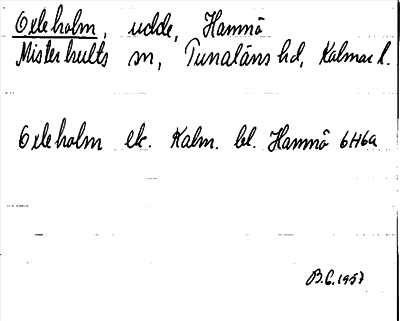 Oxleholm, udde, Hamnö
Misterhults sn, Tunaläns hd, Kalmar l.
Oxleholm ek. Kalm. bl. Hamnö 6H6a
B.G. 1957